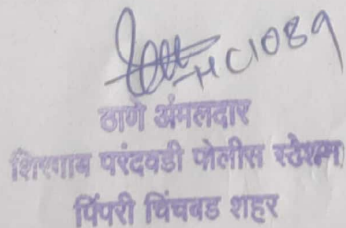 HC1089
ठाणे अंमलदार
शिरगाव परंदवडी पोलीस स्टेशन
पिंपरी चिंचवड शहर